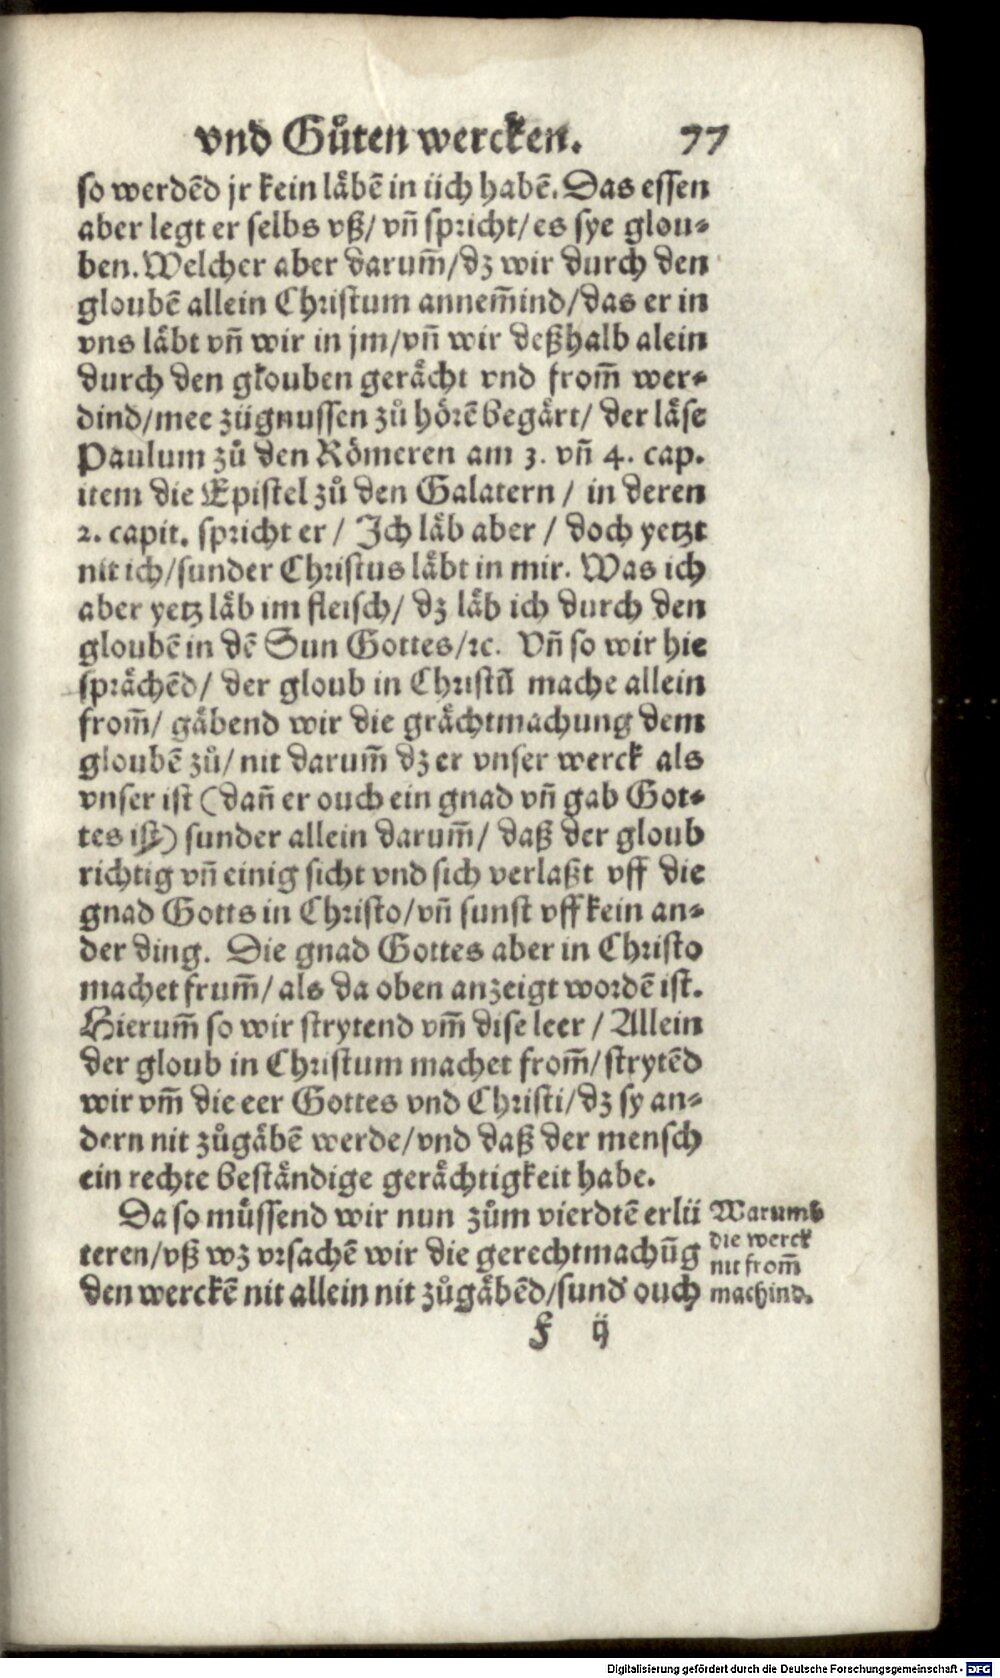 vnd Gůten wercken. 77
so werdēd jr kein läbē in üch habē. Das essen
aber legt er selbs vß/ vñ spricht/ es sye glou-
ben. Welcher aber darum̄/ dz wir durch den
gloubē allein Christum annem̄ind/ das er in
vns läbt vñ wir in jm/ vñ wir deßhalb alein
durch den glouben gerächt vnd from̄ wer-
dind/ mee zügnussen zů hörē begärt/ der läse
Paulum zů den Römeren am 3. vñ 4. cap.
item die Epistel zů den Galatern / in deren
2. capit. spricht er / Ich läb aber / doch yetzt
nit ich/ sunder Christus läbt in mir. Was ich
aber yetz läb im fleisch/ dz läb ich durch den
gloubē in dē Sun Gottes/ ꝛc. Vñ so wir hie
sprächēd/ der gloub in Christū mache allein
from̄/ gäbend wir die grächtmachung dem
gloubē zů/ nit darum̄ dz er vnser werck als
vnser ist (dañ er ouch ein gnad vñ gab Got-
tes ist) sunder allein darum̄/ daß der gloub
richtig vñ einig sicht vnd sich verlaßt vff die
gnad Gotts in Christo/ vñ sunst vff kein an-
der ding. Die gnad Gottes aber in Christo
machet frum̄/ als da oben anzeigt wordē ist.
Hierum̄ so wir strytend vm̄ dise leer / Allein
der gloub in Christum machet from̄/ strytēd
wir vm̄ die eer Gottes vnd Christi/ dz sy an-
dern nit zůgäbē werde/ vnd daß der mensch
ein rechte beständige gerächtigkeit habe.
Da so müssend wir nun zům vierdtē erlü
teren/ vß wz vrsachē wir die gerechtmachūg
den werckē nit allein nit zůgäbēd/ sund' ouch
Warumb
die werck
nit from̄
machind.
f ij
Digitalisierung gefördert durch die Deutsche Forschungsgemeinschaft - DFG